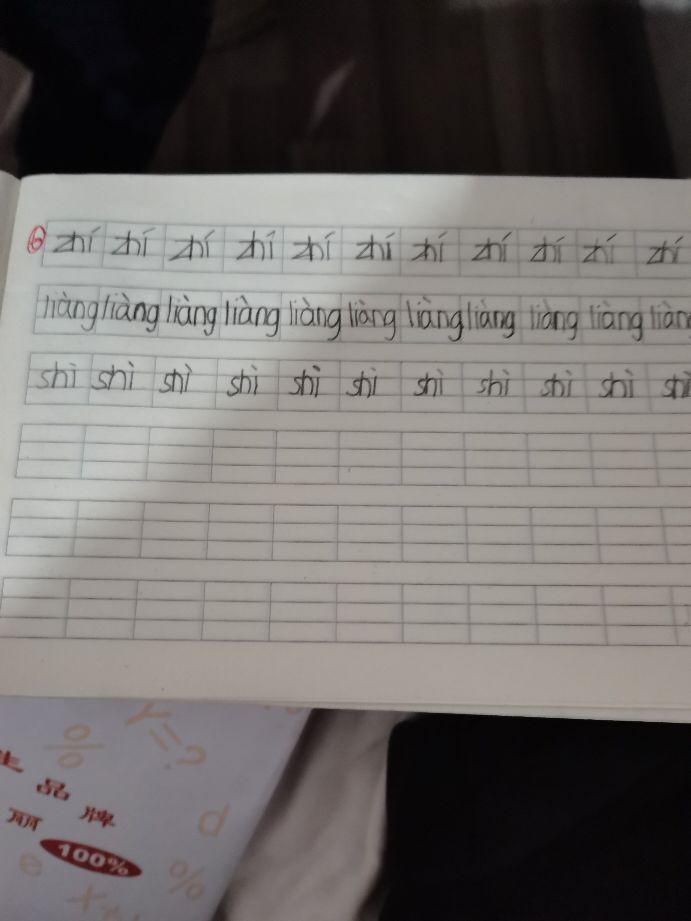 ⑥ zhí zhí zhí zhí zhí zhí zhí zhí zhí zhí zhí
liàng liàng liàng liàng liàng liàng liàng liàng liàng liàng liàng
shì shì shì shì shì shì shì shì shì shì shì
品牌
100%